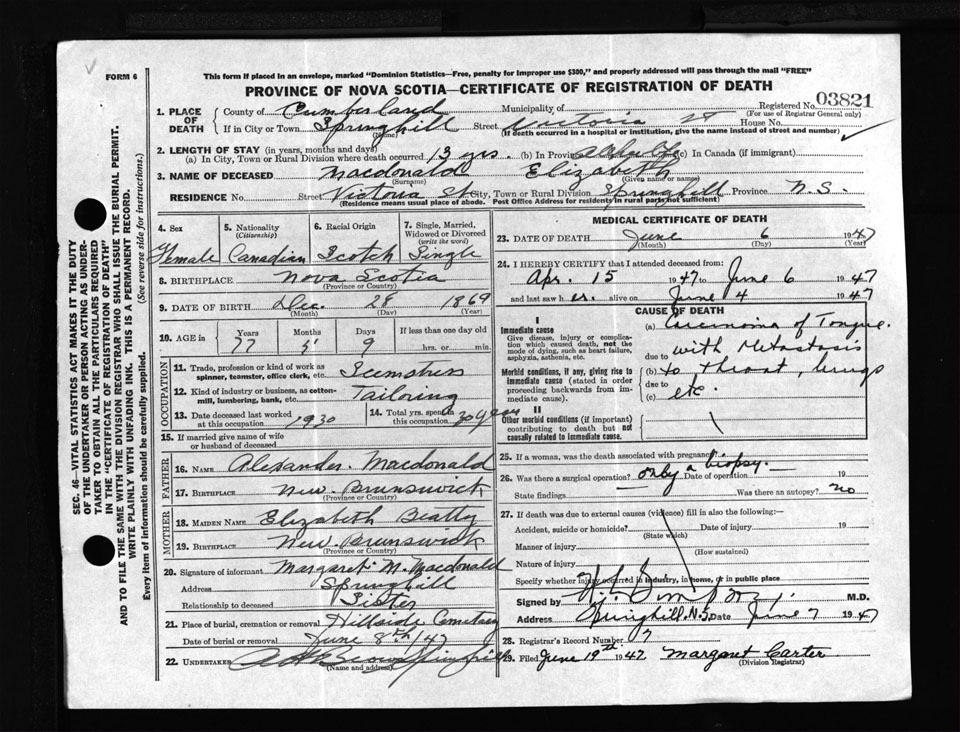 FORM 6
This form if placed in an envelope, marked "Dominion Statistics—Free, penalty for improper use $300," and properly addressed will pass through the mail "FREE"
PROVINCE OF NOVA SCOTIA—CERTIFICATE OF REGISTRATION OF DEATH
Registered No. 03821
(For use of Registrar General only)
1. PLACE OF DEATH County of Cumberland Municipality of
If in City or Town Springhill Street Victoria St House No.
(Name) (If death occurred in a hospital or institution, give the name instead of street and number)
2. LENGTH OF STAY (in years, months and days)
(a) In City, Town or Rural Division where death occurred 13 yrs. (b) In Province (c) In Canada (if immigrant)
3. NAME OF DECEASED Macdonald Elizabeth
(Surname) (Given name or names)
RESIDENCE No. Street Victoria St City, Town or Rural Division Springhill Province N.S.
(Residence means usual place of abode. Post Office Address for residents in rural parts not sufficient)
4. Sex 5. Nationality (Citizenship) 6. Racial Origin 7. Single, Married, Widowed or Divorced (write the word)
Female Canadian Scotch Single
8. BIRTHPLACE Nova Scotia
(Province or Country)
9. DATE OF BIRTH Dec. 28 1869
(Month) (Day) (Year)
10. AGE in Years Months Days If less than one day old
77 5 9 hrs. or min.
OCCUPATION
11. Trade, profession or kind of work as spinner, teamster, office clerk, etc. Seemstress
12. Kind of industry or business, as cotton-mill, lumbering, bank, etc. Tailoring
13. Date deceased last worked at this occupation 1930 14. Total yrs. spent in this occupation 30 years
15. If married give name of wife or husband of deceased
FATHER
16. NAME Alexander Macdonald
17. BIRTHPLACE New Brunswick
(Province or Country)
MOTHER
18. MAIDEN NAME Elizabeth Beatty
19. BIRTHPLACE New Brunswick
(Province or Country)
20. Signature of informant Margaret M. Macdonald
Address Springhill
Relationship to deceased Sister
21. Place of burial, cremation or removal Hillside Cemetary
Date of burial or removal June 8th/47
22. UNDERTAKER A H Brown Springhill
(Name and address)
MEDICAL CERTIFICATE OF DEATH
23. DATE OF DEATH June 6 1947
(Month) (Day) (Year)
24. I HEREBY CERTIFY that I attended deceased from:
Apr. 15 1947 to June 6 1947
and last saw h er. alive on June 4 1947
CAUSE OF DEATH
I
Immediate cause
Give disease, injury or complication which caused death, not the mode of dying, such as heart failure, asphyxia, asthenia, etc.
Morbid conditions, if any, giving rise to immediate cause (stated in order proceeding backwards from immediate cause).
II
Other morbid conditions (if important) contributing to death but not causally related to immediate cause.
(a) Carcinoma of Tongue.
due to with Metastasis
(b) to throat, lungs
due to
(c) etc
25. If a woman, was the death associated with pregnancy?
26. Was there a surgical operation? only a biopsy. Date of operation 19
State findings Was there an autopsy? no
27. If death was due to external causes (violence) fill in also the following:—
Accident, suicide or homicide? Date of injury 19
(State which)
Manner of injury
(How sustained)
Nature of injury
Specify whether injury occurred in industry, in home, or in public place
Signed by M.D.
Address Springhill N.S. Date June 7 1947
28. Registrar's Record Number 7
29. Filed June 19th 1947 Margaret Carter
(Division Registrar)
SEC. 46—VITAL STATISTICS ACT MAKES IT THE DUTY
OF THE UNDERTAKER OR PERSON ACTING AS UNDER-
TAKER TO OBTAIN ALL THE PARTICULARS REQUIRED
IN THE "CERTIFICATE OF REGISTRATION OF DEATH"
AND TO FILE THE SAME WITH THE DIVISION REGISTRAR WHO SHALL ISSUE THE BURIAL PERMIT.
WRITE PLAINLY WITH UNFADING INK. THIS IS A PERMANENT RECORD.
Every item of information should be carefully supplied. (See reverse side for instructions.)